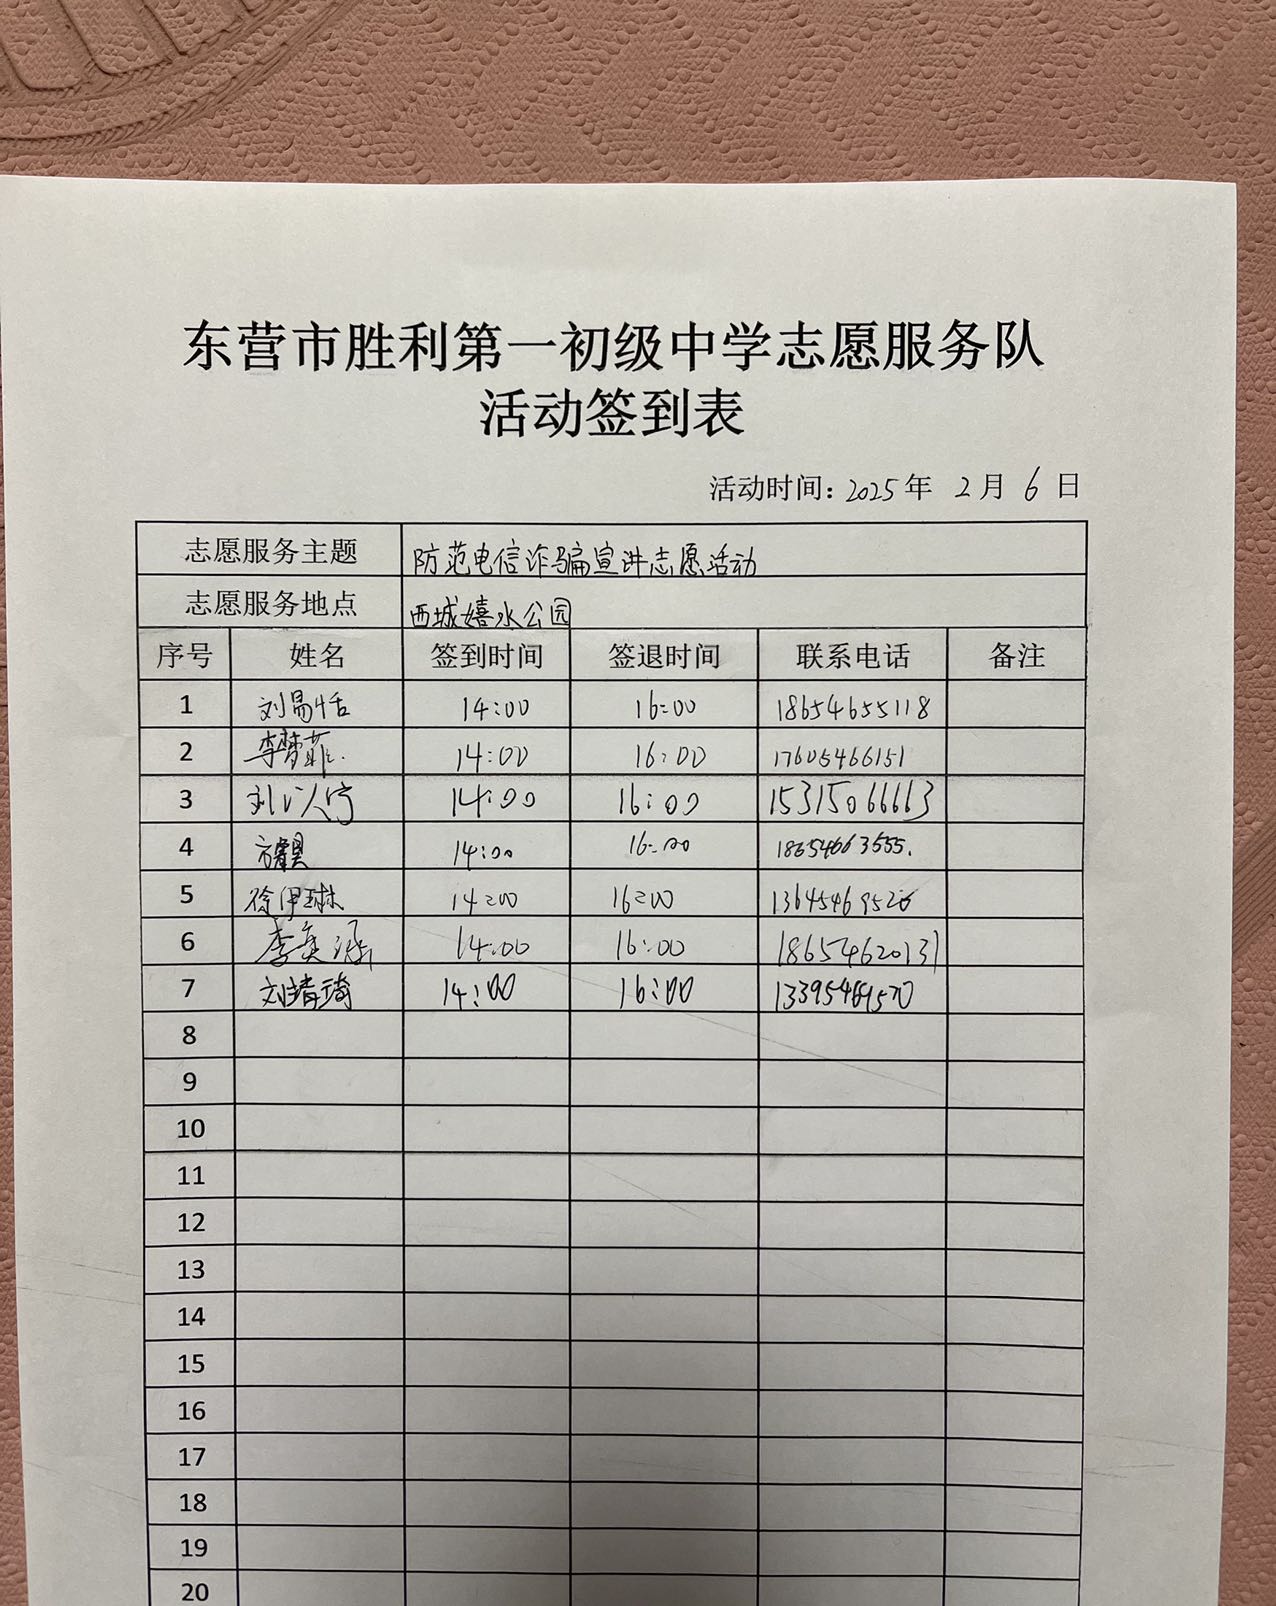 东营市胜利第一初级中学志愿服务队
活动签到表
活动时间：2025年 2月 6日
志愿服务主题 防范电信诈骗宣讲志愿活动
志愿服务地点 西城嬉水公园
序号 姓名 签到时间 签退时间 联系电话 备注
1 刘易恬 14:00 16:00 18654655118
2 李梦菲 14:00 16:00 17605466151
3 14:00 16:00 15315066663
4 14:00 16:00 18654663555
5 徐伊琳 14:00 16:00 13645469526
6 李奕涵 14:00 16:00 18654620131
7 刘靖琦 14:00 16:00 13395469570
8
9
10
11
12
13
14
15
16
17
18
19
20